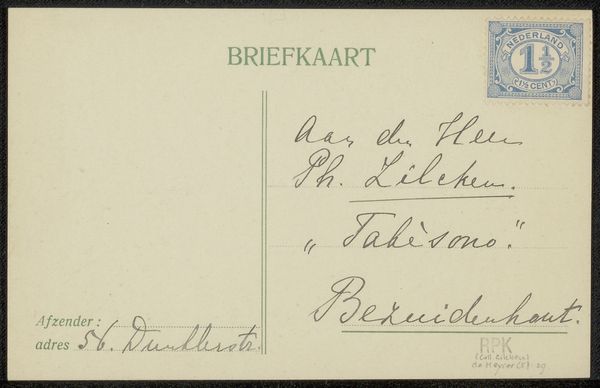 BRIEFKAART
NEDERLAND
1 1/2
(1½ CENT)
Aan den Heer
Ph. Zilcken.
„Hélène".
Bezuidenhout.
Afzender:
adres 56. Dunklerstr.
RPK
(coll. Zilcken)